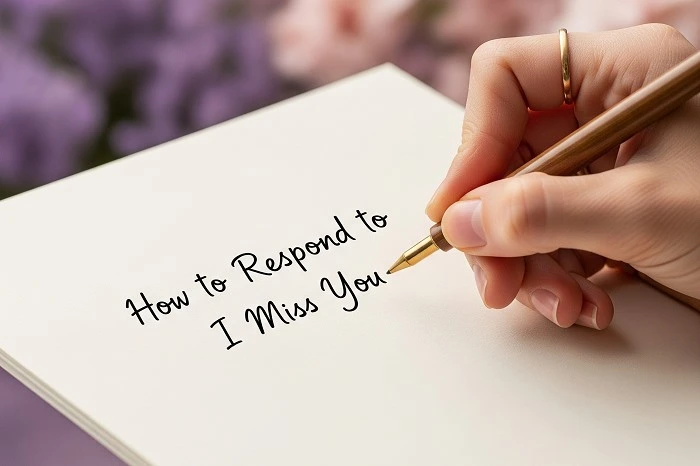 How to Respond to
I Miss You